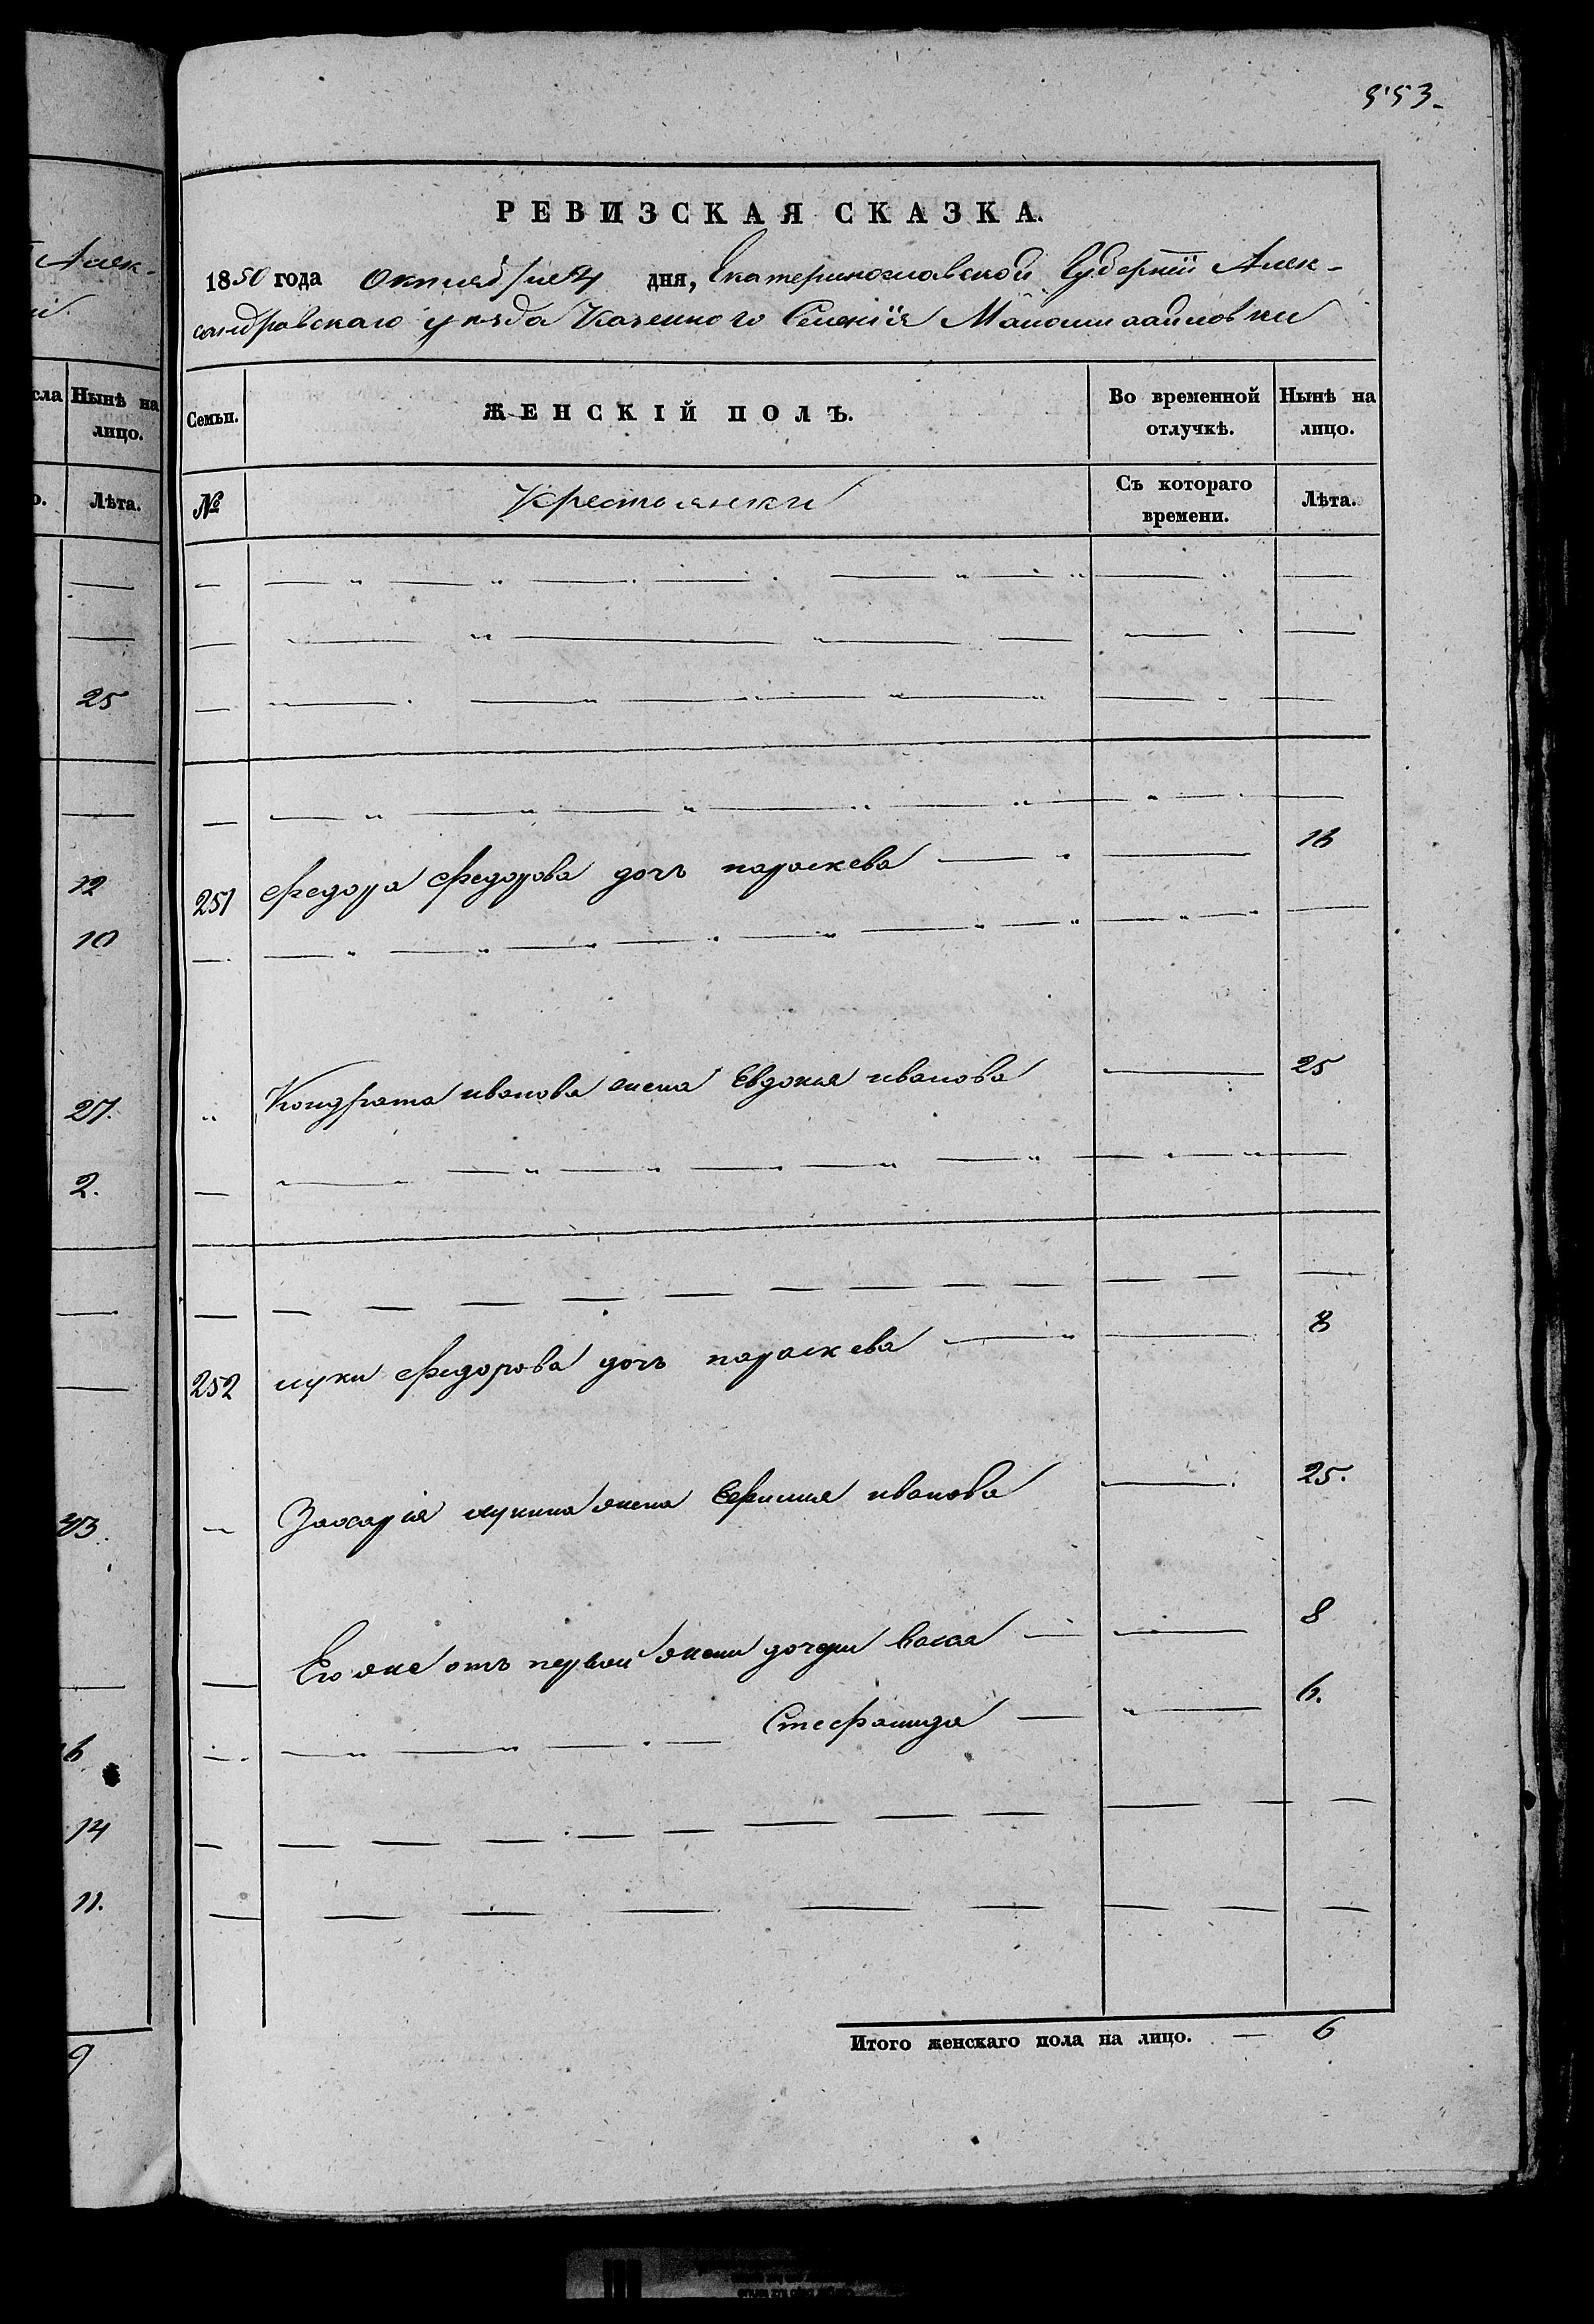 553
Алек-
сла
Нынѣ на
лицо.
о.
Лѣта.
25
12
10
27.
2.
33.
14
11.
9
РЕВИЗСКАЯ СКАЗКА.
1850 года Октября 4 дня, Екатеринославской Губерніи Алек-
сандровскаго уѣзда Казенного Селенія Маломихайловки
Семьи.
ЖЕНСКІЙ ПОЛЪ.
Во временной отлучкѣ.
Нынѣ на лицо.
№
Крестьянки
Съ котораго времени.
Лѣта.
251 Федора Федорова дочь параскева 16
Кондрата иванова жена Евдокия иванова 25
252 луки Федорова дочь параскева 8
Захария лукина жена иванова 25.
Его же отъ первой жены дочери васса 8
Стефанида 6.
Итого женскаго пола на лицо. — 6